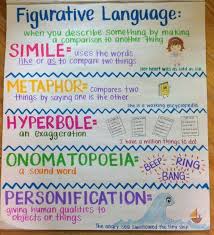 Figurative Language:
when you describe something by making
a comparison to another thing
SIMILE= uses the words
like or as to compare two things
Her heart was as cold as ice
METAPHOR= compares two
things by saying one is the other
She is a walking encyclopedia
HYPERBOLE=
an exaggeration
I have a million things to do!
ONOMATOPOEIA=
a sound word
BEEP
RING
BANG
PERSONIFICATION=
giving human qualities to
objects or things
The angry sea swallowed the tiny ship